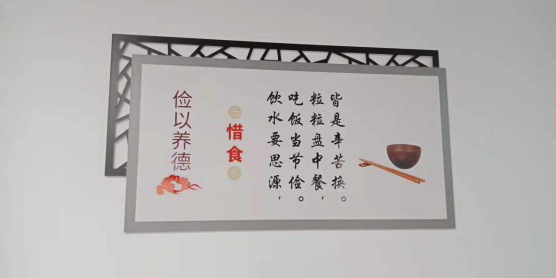 俭以养德
惜食
饮水要思源，
吃饭当节俭。
粒粒盘中餐，
皆是辛苦换。